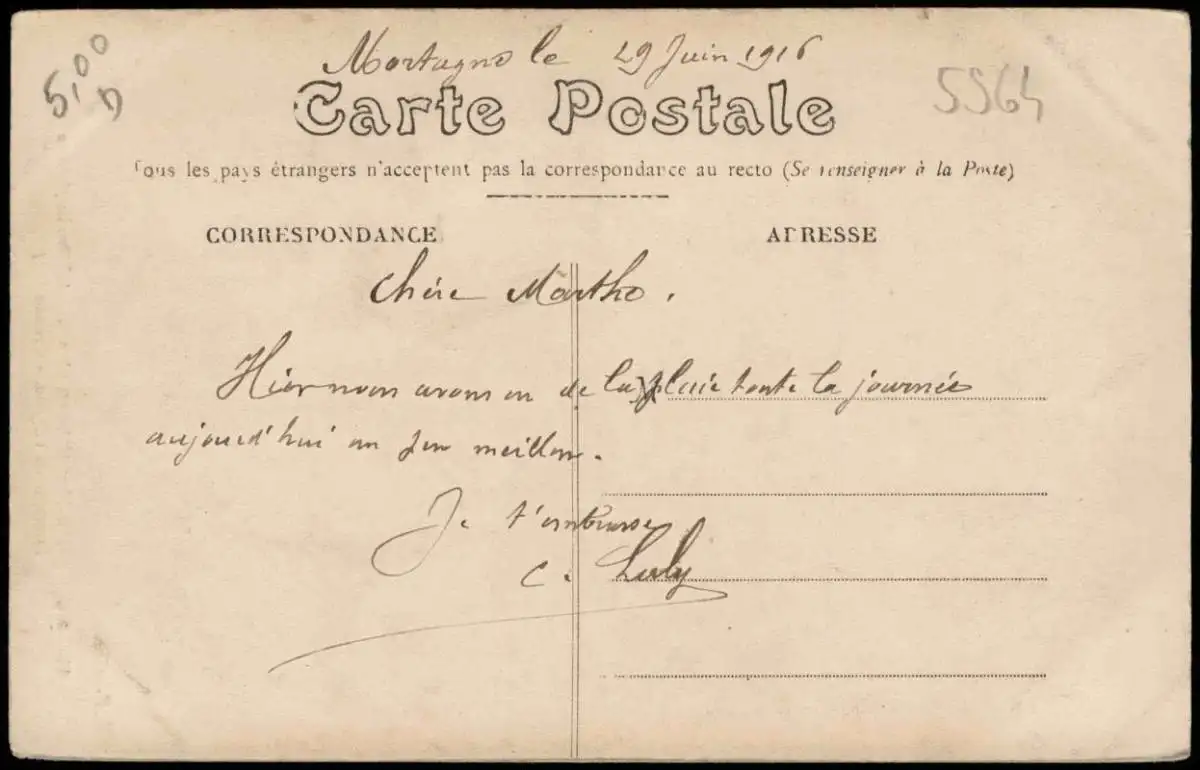 5,00
Mortagne le 29 Juin 1916
5564
Carte Postale
Tous les pays étrangers n'acceptent pas la correspondance au recto (Se renseigner à la Poste)
CORRESPONDANCE
ADRESSE
Chère Marthe.
Hier nous avons eu de la pluie toute la journée
aujourd'hui un peu meilleur.
Je t'embrasse
C.